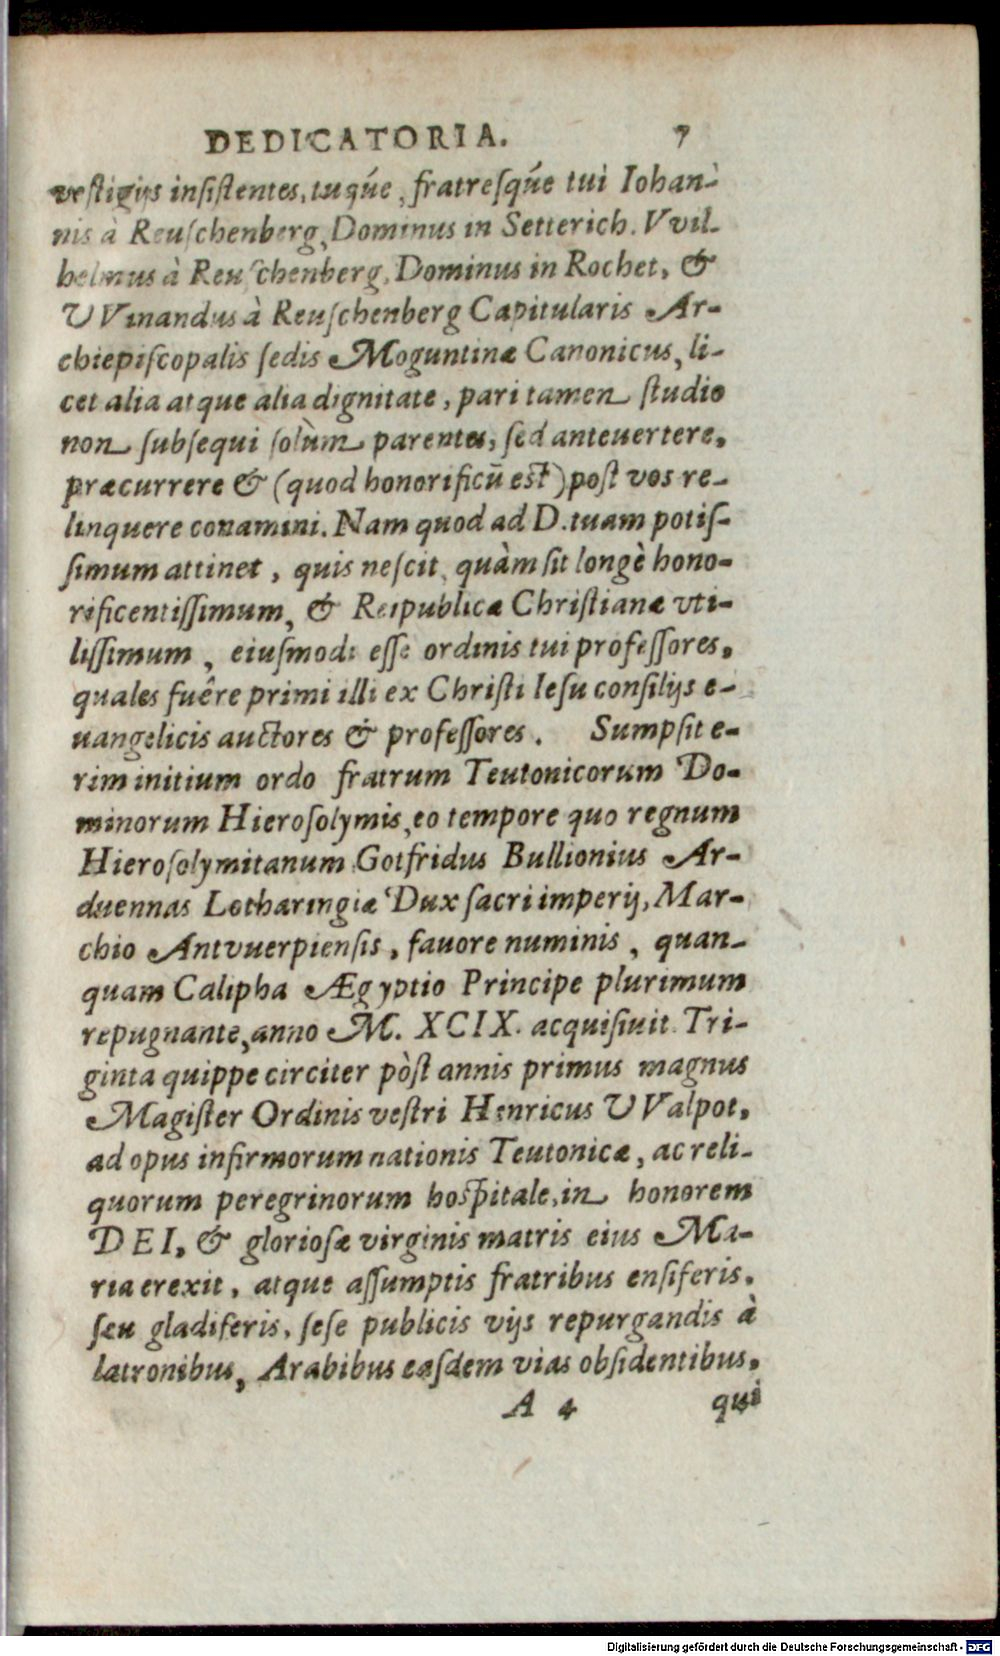 DEDICATORIA. 7
vestigijs insistentes, tuq́ue, fratresq́ue tui Iohan-
nis à Reuschenberg, Dominus in Setterich. VVil-
helmus à Reuschenberg, Dominus in Rochet, &
VVinandus à Reuschenberg Capitularis Ar-
chiepiscopalis sedis Moguntinæ Canonicus, li-
cet alia atque alia dignitate, pari tamen studio
non subsequi solùm parentes, sed anteuertere,
præcurrere & (quod honorificū est) post vos re-
linquere conamini. Nam quod ad D. tuam potis-
simum attinet, quis nescit, quàm sit longè hono-
rificentissimum, & Reipublicæ Christianæ vti-
lissimum, eiusmodi esse ordinis tui professores,
quales fuêre primi illi ex Christi Iesu consilijs e-
uangelicis auctores & professores. Sumpsit e-
nim initium ordo fratrum Teutonicorum Do-
minorum Hierosolymis, eo tempore quo regnum
Hierosolymitanum Gotfridus Bullionius Ar-
duennas Lotharingiæ Dux sacri imperij, Mar-
chio Antvuerpiensis, fauore numinis, quan-
quam Calipha Ægyptio Principe plurimum
repugnante, anno M. XCIX. acquisiuit. Tri-
ginta quippe circiter pòst annis primus magnus
Magister Ordinis vestri Henricus VValpot,
ad opus infirmorum nationis Teutonicæ, ac reli-
quorum peregrinorum hospitale, in honorem
DEI, & gloriosæ virginis matris eius Ma-
ria erexit, atque assumptis fratribus ensiferis,
seu gladiferis, sese publicis vijs repurgandis à
latronibus, Arabibus easdem vias obsidentibus,
A 4 qui
Digitalisierung gefördert durch die Deutsche Forschungsgemeinschaft - DFG